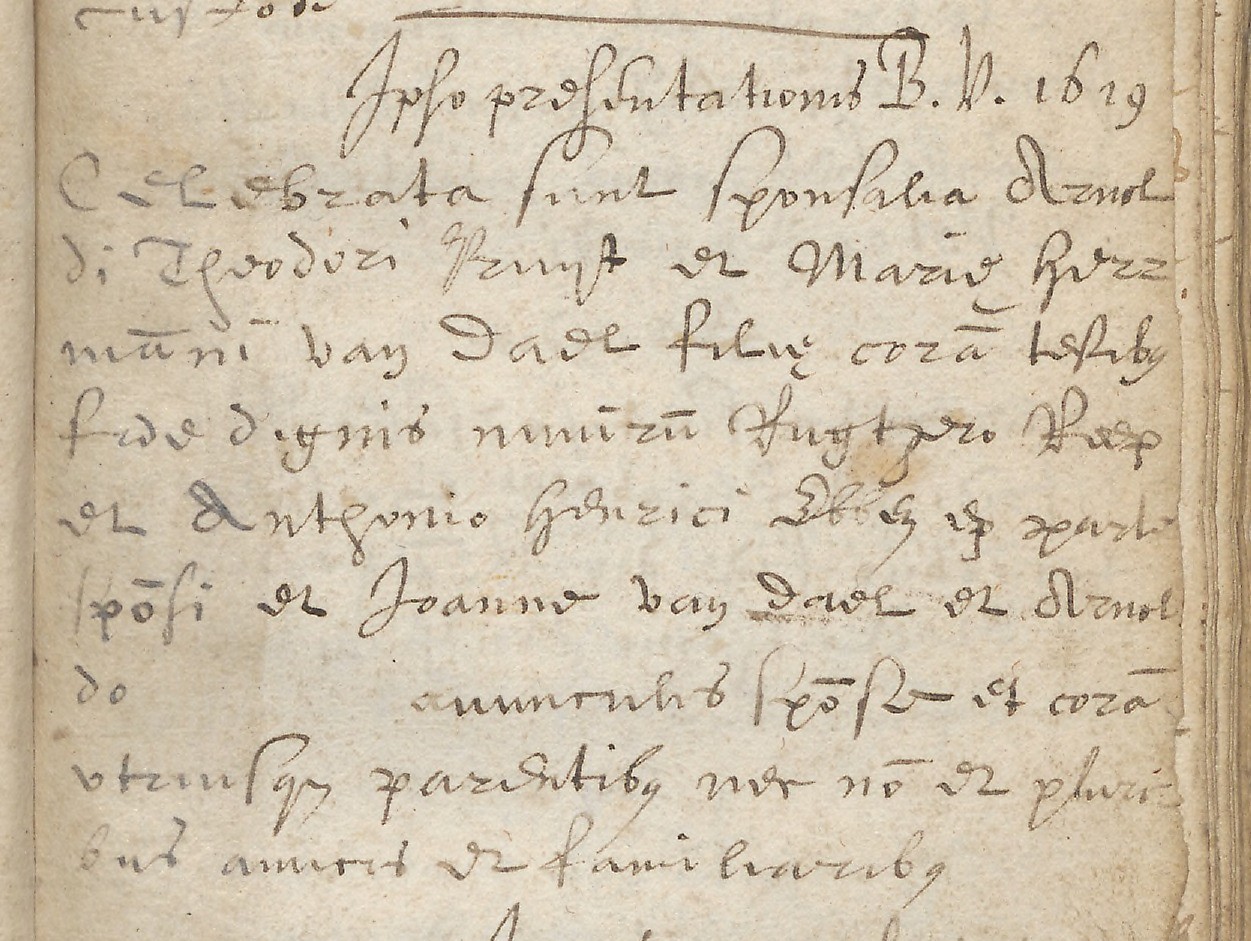 custode
Ipso presentationis B. V. 1619
Celebrata sunt sponsalia Arnol
di Theodori et Marię Herr
māni van Dael filię corā testibꝰ
fide dignis nimirū Rugtgero Reep
et Anthonio Henrici Ebben ex parte
spōsi et Joanne van dael et Arnol
do avunculis spōse et corā
utriusqꝫ parentibꝰ nec nō et pluri
bus amicis et familiaribꝰ